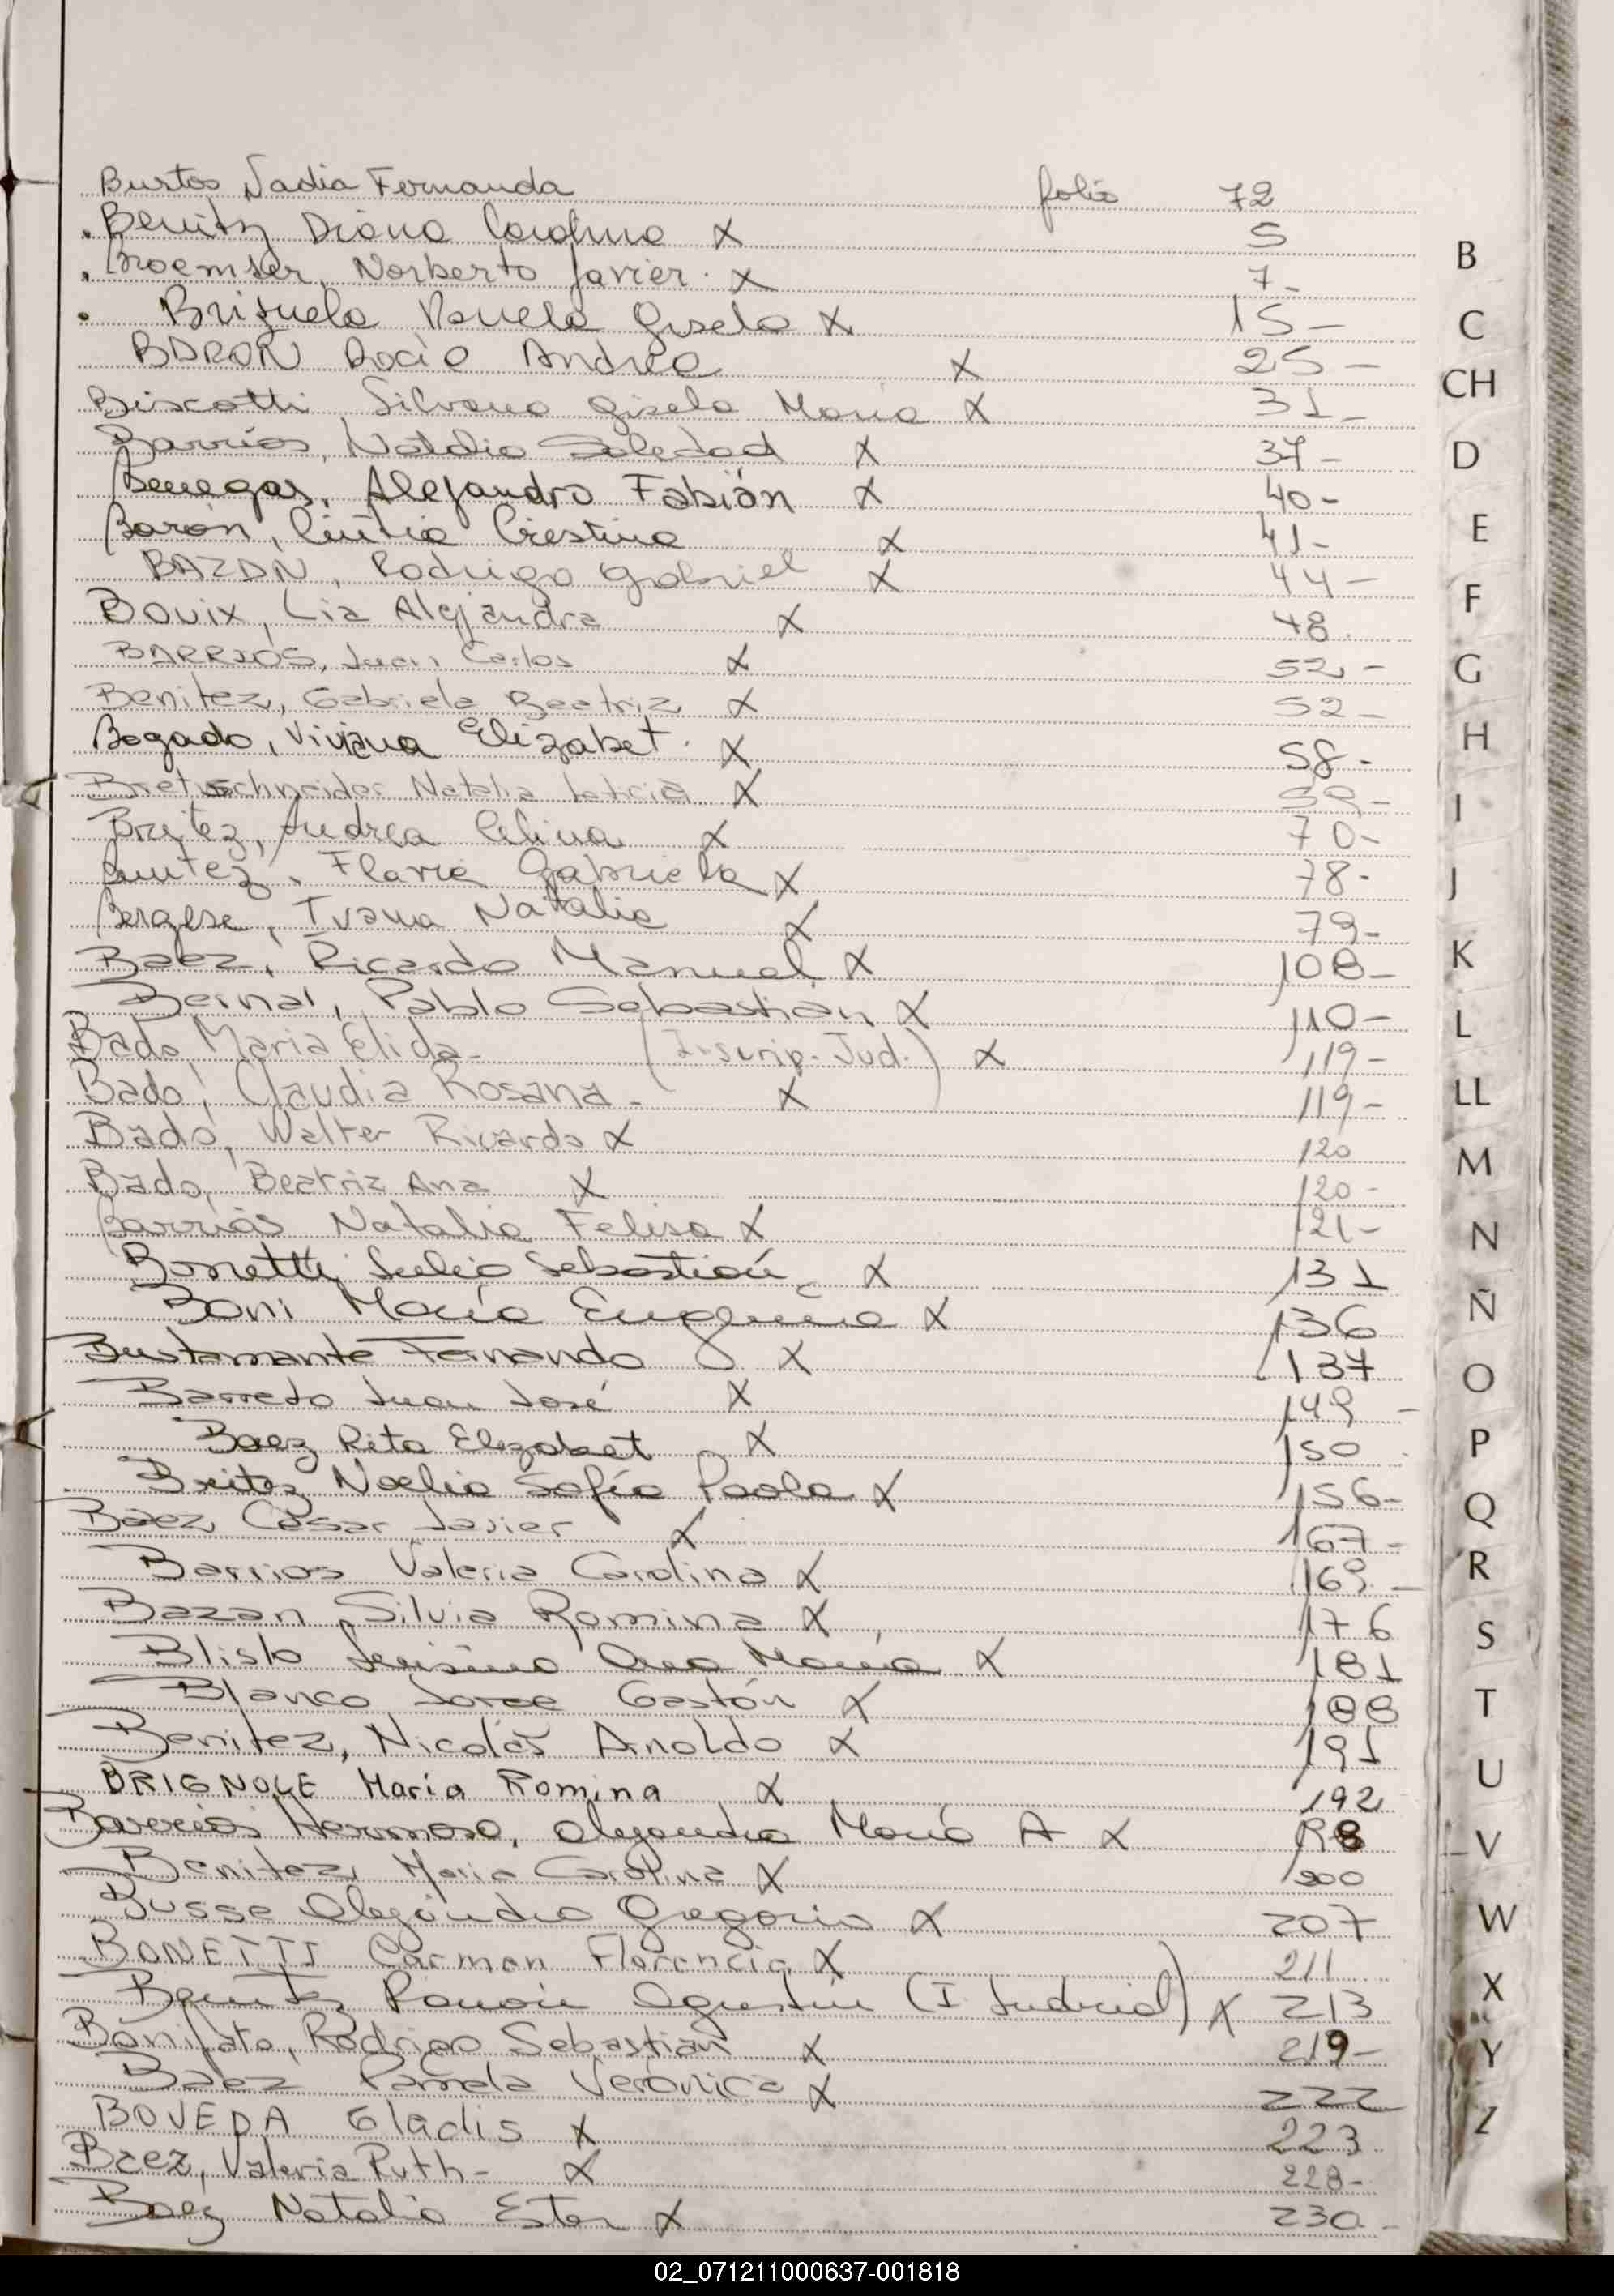 Bustos Nadia Fernanda folio 72
. Benitz Diana Carolina X 5
. Broemser, Norberto Javier. X 7-
. Brizuela Pamela Gisela X 15-
BARON Rocio Andrea X 25-
Biscotti, Silvana Gisela María X 31-
Barrios, Natalia Soledad X 37-
Benegas, Alejandro Fabián X 40-
Barón, Cintia Cristina X 41-
BAZAN, Rodrigo Gabriel X 44-
Bouix, Lia Alejandra X 48
BARRIOS, Juan Carlos X 52-
Benitez, Gabriela Beatriz X 52-
Bogado, Viviana Elizabet. X 58-
Bretschneider Natalia Leticia X 59-
Britez, Andrea Celina X 70-
Benitez, Flavia Gabriela X 78-
Bergese, Ivana Natalia X 79-
Baez, Ricardo Manuel X 108-
Bernal, Pablo Sebastián X 110-
Bado Maria Elida- (Inscrip. Jud.) X 119-
Bado, Claudia Rosana- X 119-
Bado, Walter Ricardo X 120
Bado, Beatriz Ana X 120-
Barrios Natalia Felisa X 121-
Bonetti Julio Sebastián X 131
Boni María Eugenia X 136
Bustamante Fernando X 137
Barreto Juan José X 149-
Baez Rita Elizabet X 150
Britez Noelia Sofía Paola X 156-
Báez César Javier X 167-
Barrios Valeria Carolina X 169-
Bazan Silvia Romina X 176
Ana María X 181
Blanco Jorge Gastón X 188
Benitez, Nicolás Arnoldo X 191
BRIGNOLE María Romina X 192
Barrios Hermoso, Alejandra María A X
Benitez, María Carolina X 200
Busse Alejandro Gregorio X 207
BONETTI Carmen Florencia X 211
Benitez Ramón Agustin (I Judicial) X 213
Bonifato, Rodrigo Sebastián X 219-
Baez Pamela Verónica X 222
BOVEDA Gladis X 223
Baez, Valeria Ruth- X 228-
Baez Natalia Ester X 230-
B
C
CH
D
E
F
G
H
I
J
K
L
LL
M
N
Ñ
O
P
Q
R
S
T
U
V
W
X
Y
Z
02_071211000637-001818